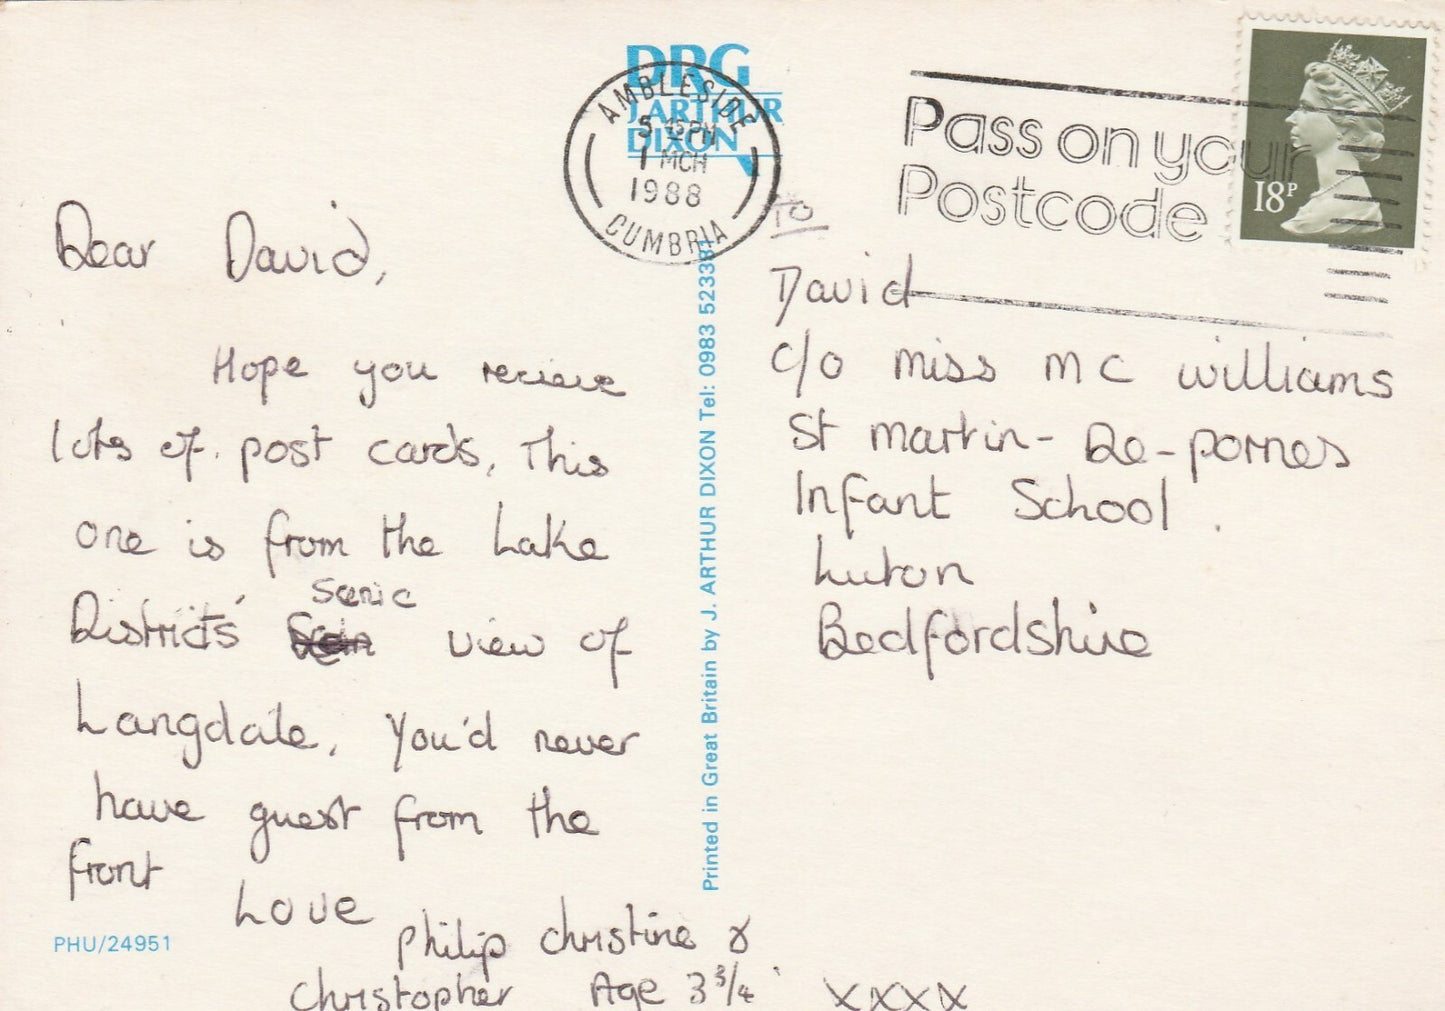 DRG
J. ARTHUR
DIXON
AMBLESIDE
5 45 PM
1 MCH
1988
CUMBRIA
Pass on your
Postcode
18P
Dear David,
Hope you recieve
lots of post cards, This
one is from the Lake
Districts' Scenic view of
Langdale, You'd never
have guest from the
front
Love
Philip Christine &
Christopher Age 3 3/4 XXXX
PHU/24951
Printed in Great Britain by J. ARTHUR DIXON Tel: 0983 523381
To
David
c/o Miss Mc Williams
St Martin-De-Porres
Infant School.
Luton
Bedfordshire